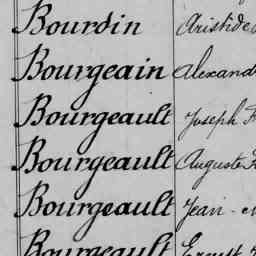 Bourdin Aristide
Bourgeain Alexand
Bourgeault Joseph
Bourgeault Auguste
Bourgeault Jean
Bourgeault Ernest